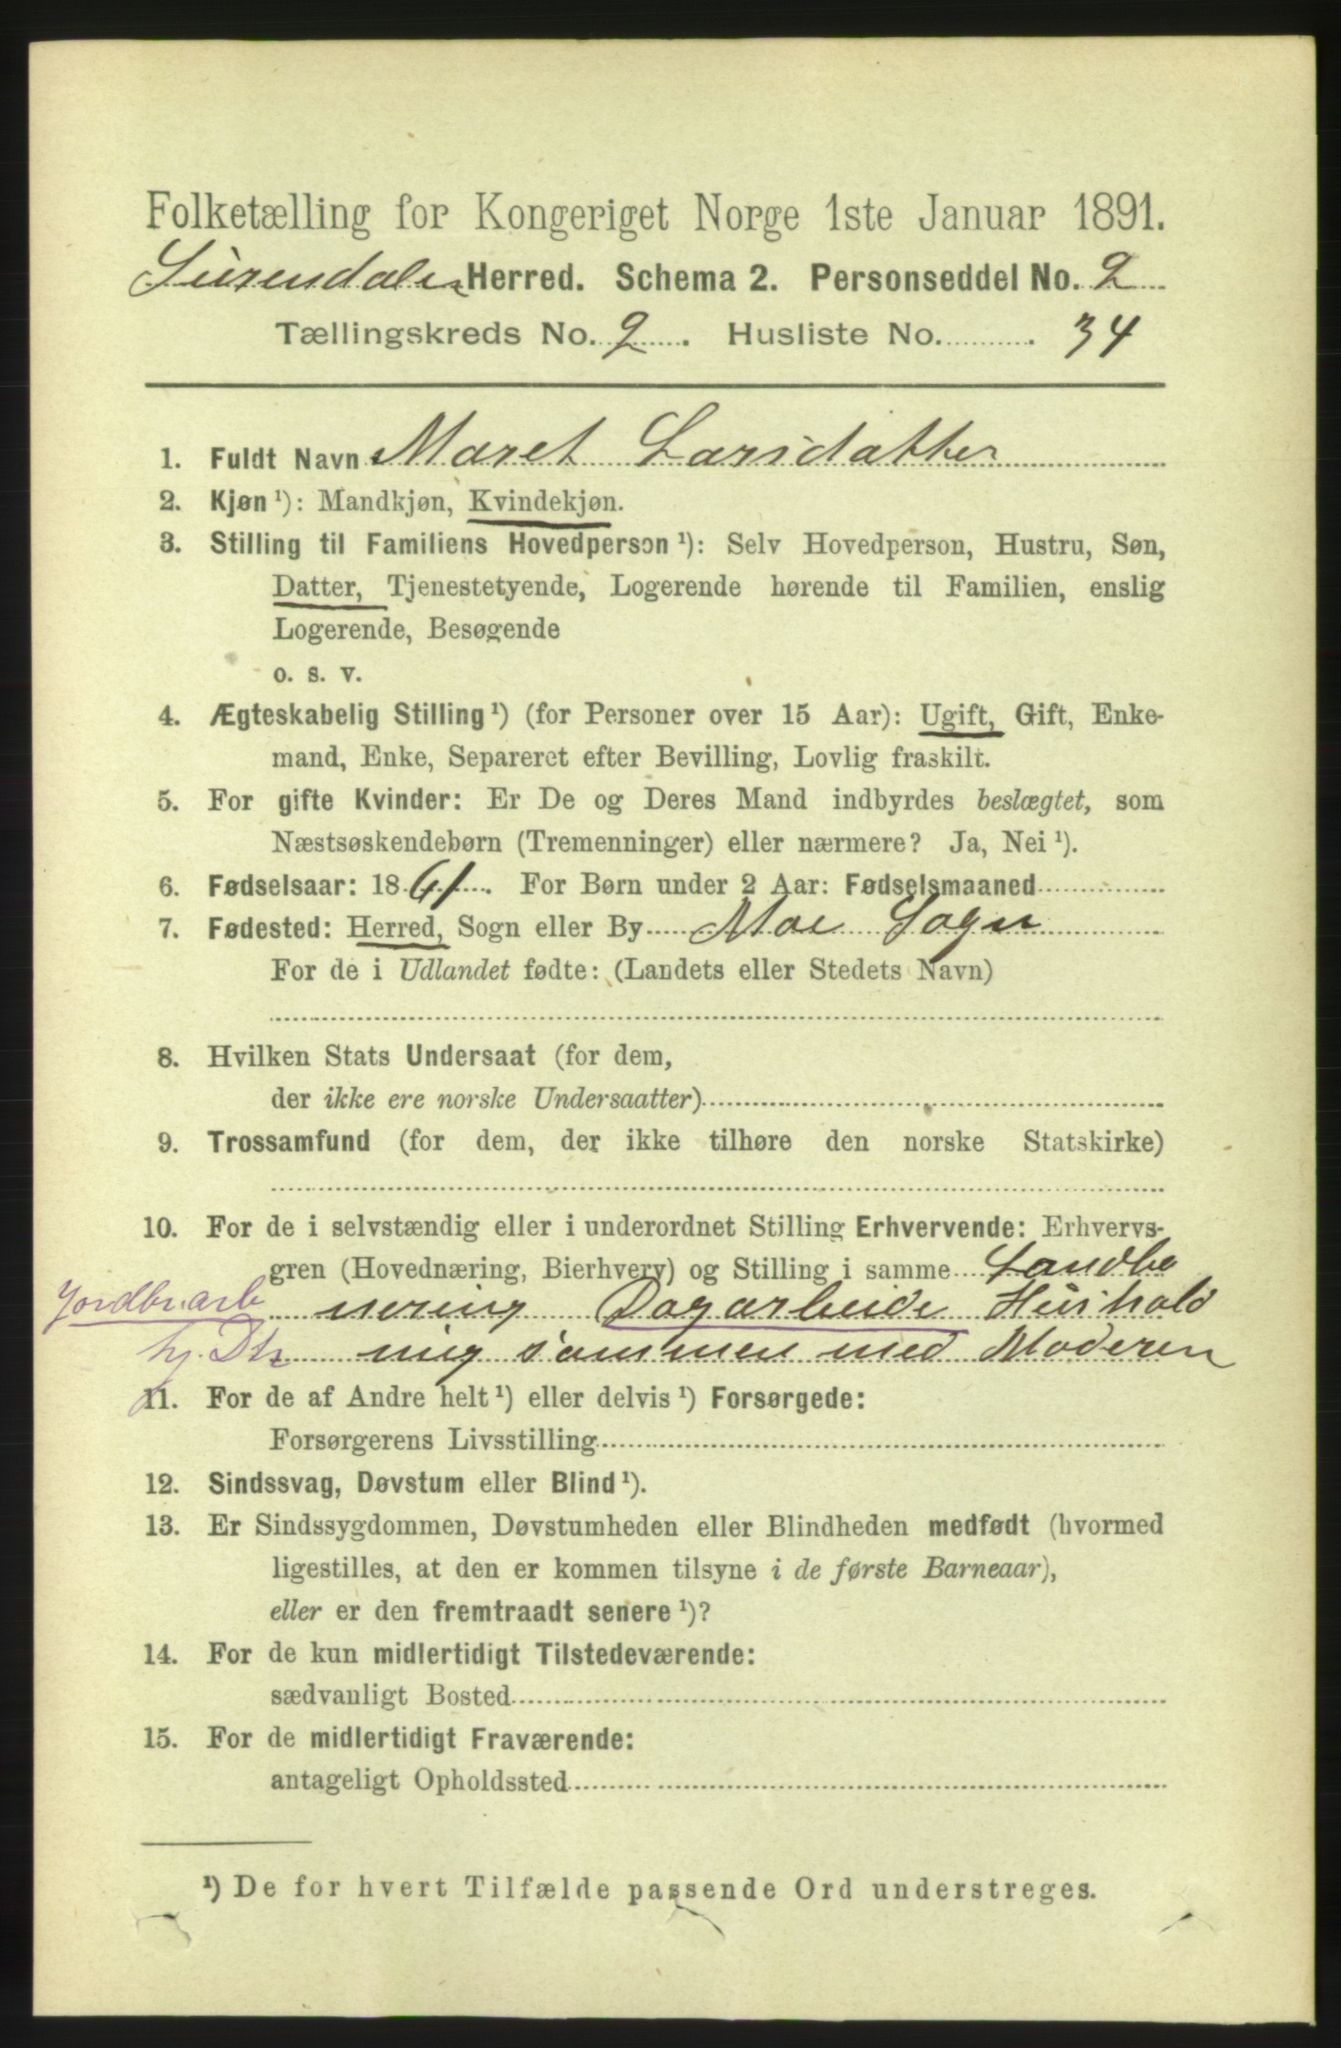 Folketælling for Kongeriget Norge 1ste Januar 1891.
Surendalen Herred. Schema 2. Personseddel No. 2
Tællingskreds No. 2. Husliste No. 34
1. Fuldt Navn Maret Larsdatter
2. Kjøn ¹): Mandkjøn, Kvindekjøn.
3. Stilling til Familiens Hovedperson ¹): Selv Hovedperson, Hustru, Søn,
Datter, Tjenestetyende, Logerende hørende til Familien, enslig
Logerende, Besøgende
o. s. v.
4. Ægteskabelig Stilling ¹) (for Personer over 15 Aar): Ugift, Gift, Enke-
mand, Enke, Separeret efter Bevilling, Lovlig fraskilt.
5. For gifte Kvinder: Er De og Deres Mand indbyrdes beslægtet, som
Næstsøskendebørn (Tremenninger) eller nærmere? Ja, Nei ¹).
6. Fødselsaar: 1861. For Børn under 2 Aar: Fødselsmaaned
7. Fødested: Herred, Sogn eller By Moe Sogn
For de i Udlandet fødte: (Landets eller Stedets Navn)
8. Hvilken Stats Undersaat (for dem,
der ikke ere norske Undersaatter)
9. Trossamfund (for dem, der ikke tilhøre den norske Statskirke)
10. For de i selvstændig eller i underordnet Stilling Erhvervende: Erhvervs-
gren (Hovednæring, Bierhverv) og Stilling i samme Landbe
Jordbr.arb nering Dagarbeide Hushold
hj. Dtr ning sammen med Moderen
11. For de af Andre helt ¹) eller delvis ¹) Forsørgede:
Forsørgerens Livsstilling
12. Sindssvag, Døvstum eller Blind ¹).
13. Er Sindssygdommen, Døvstumheden eller Blindheden medfødt (hvormed
ligestilles, at den er kommen tilsyne i de første Barneaar),
eller er den fremtraadt senere ¹)?
14. For de kun midlertidigt Tilstedeværende:
sædvanligt Bosted
15. For de midlertidigt Fraværende:
antageligt Opholdssted
¹) De for hvert Tilfælde passende Ord understreges.